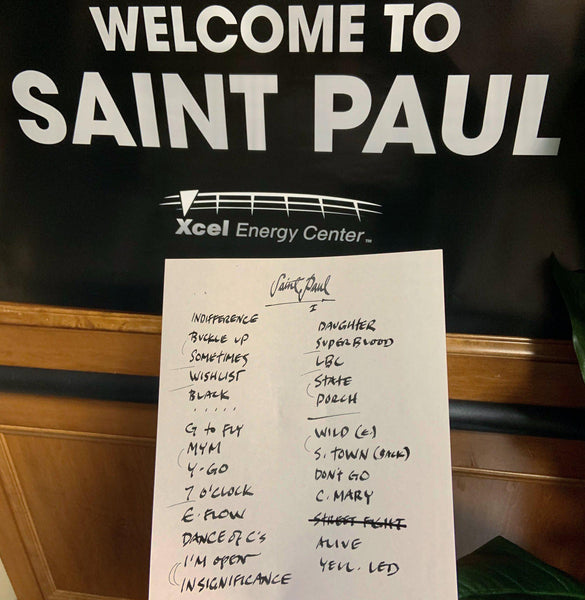 WELCOME TO
SAINT PAUL
Xcel Energy Center™
Saint, Paul
I
INDIFFERENCE
BUCKLE UP
SOMETIMES
WISHLIST
BLACK
.....
G to FLY
MYM
Y-GO
7 O'CLOCK
E. FLOW
DANCE of C'S
I'M OPEN
INSIGNIFICANCE
DAUGHTER
SUPERBLOOD
LBC
STATE
PORCH
WILD (E.)
S. TOWN (BACK)
DON'T GO
C. MARY
STREET FGHT
ALIVE
YELL. LED